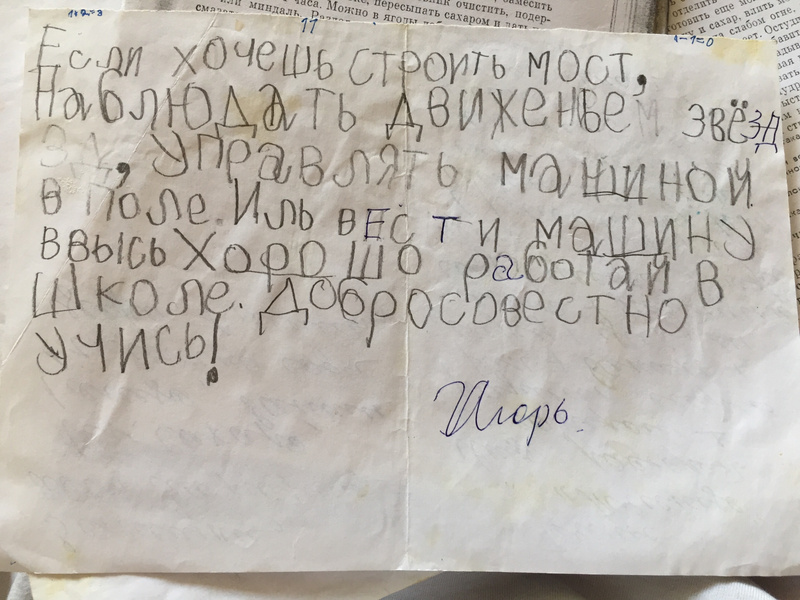 ник очистить, подер-
пересыпать сахаром и дать
часа. Можно в ягоды
или миндаль.
отделить
на слабом огне.
1+2=3
11
1-1=0
Если хочешь строить мост,
Наблюдать движенье звёзд
, управлять машиной
в поле. Иль вести машину
ввысь Хорошо работай в
школе. Добросовестно
учись!
Игорь.